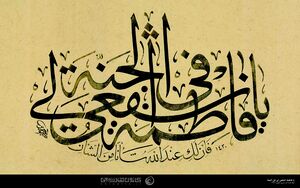 يا فاطمة اشفعي لي في الجنة
فإن لك عند الله شأنا من الشأن
١٤٣٠